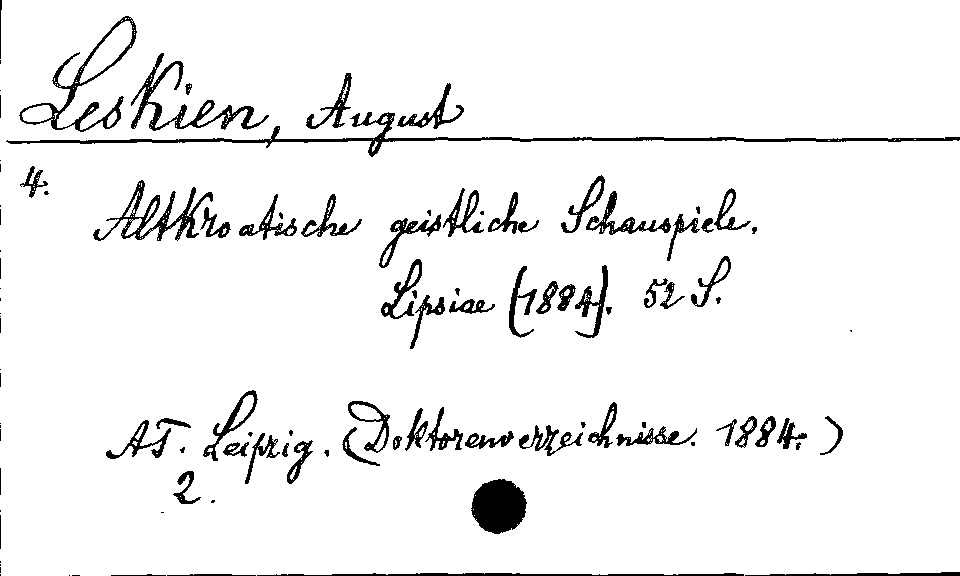 Leskien, August
4.
Altkroatische geistliche Schauspiele.
Lipsiae [1884]. 52 S.
AT. Leipzig. (Doktorenverzeichnisse. 1884.)
2.